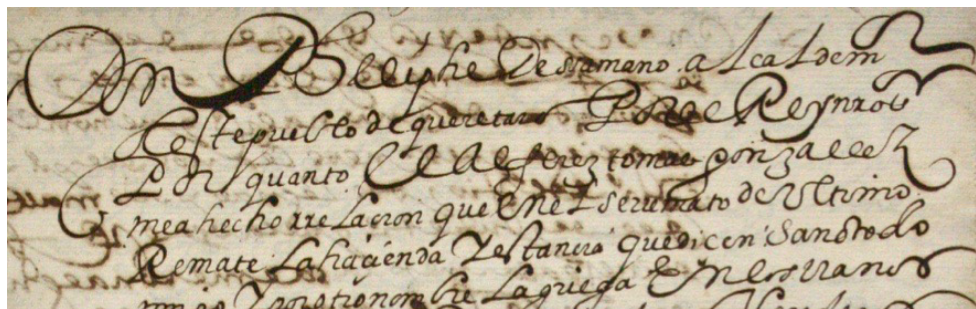 Don Pheliphe de ssamano alcaldem
deste pueblo de queretaro Por el Rey nro s
Por quanto El alferez tomas gonzalez
mea hecho rrelacion que Enel se rremato de Ultimo
Remate La hacienda Y estancia que dicen sancto do
mingo Y por otro nombre La griega En